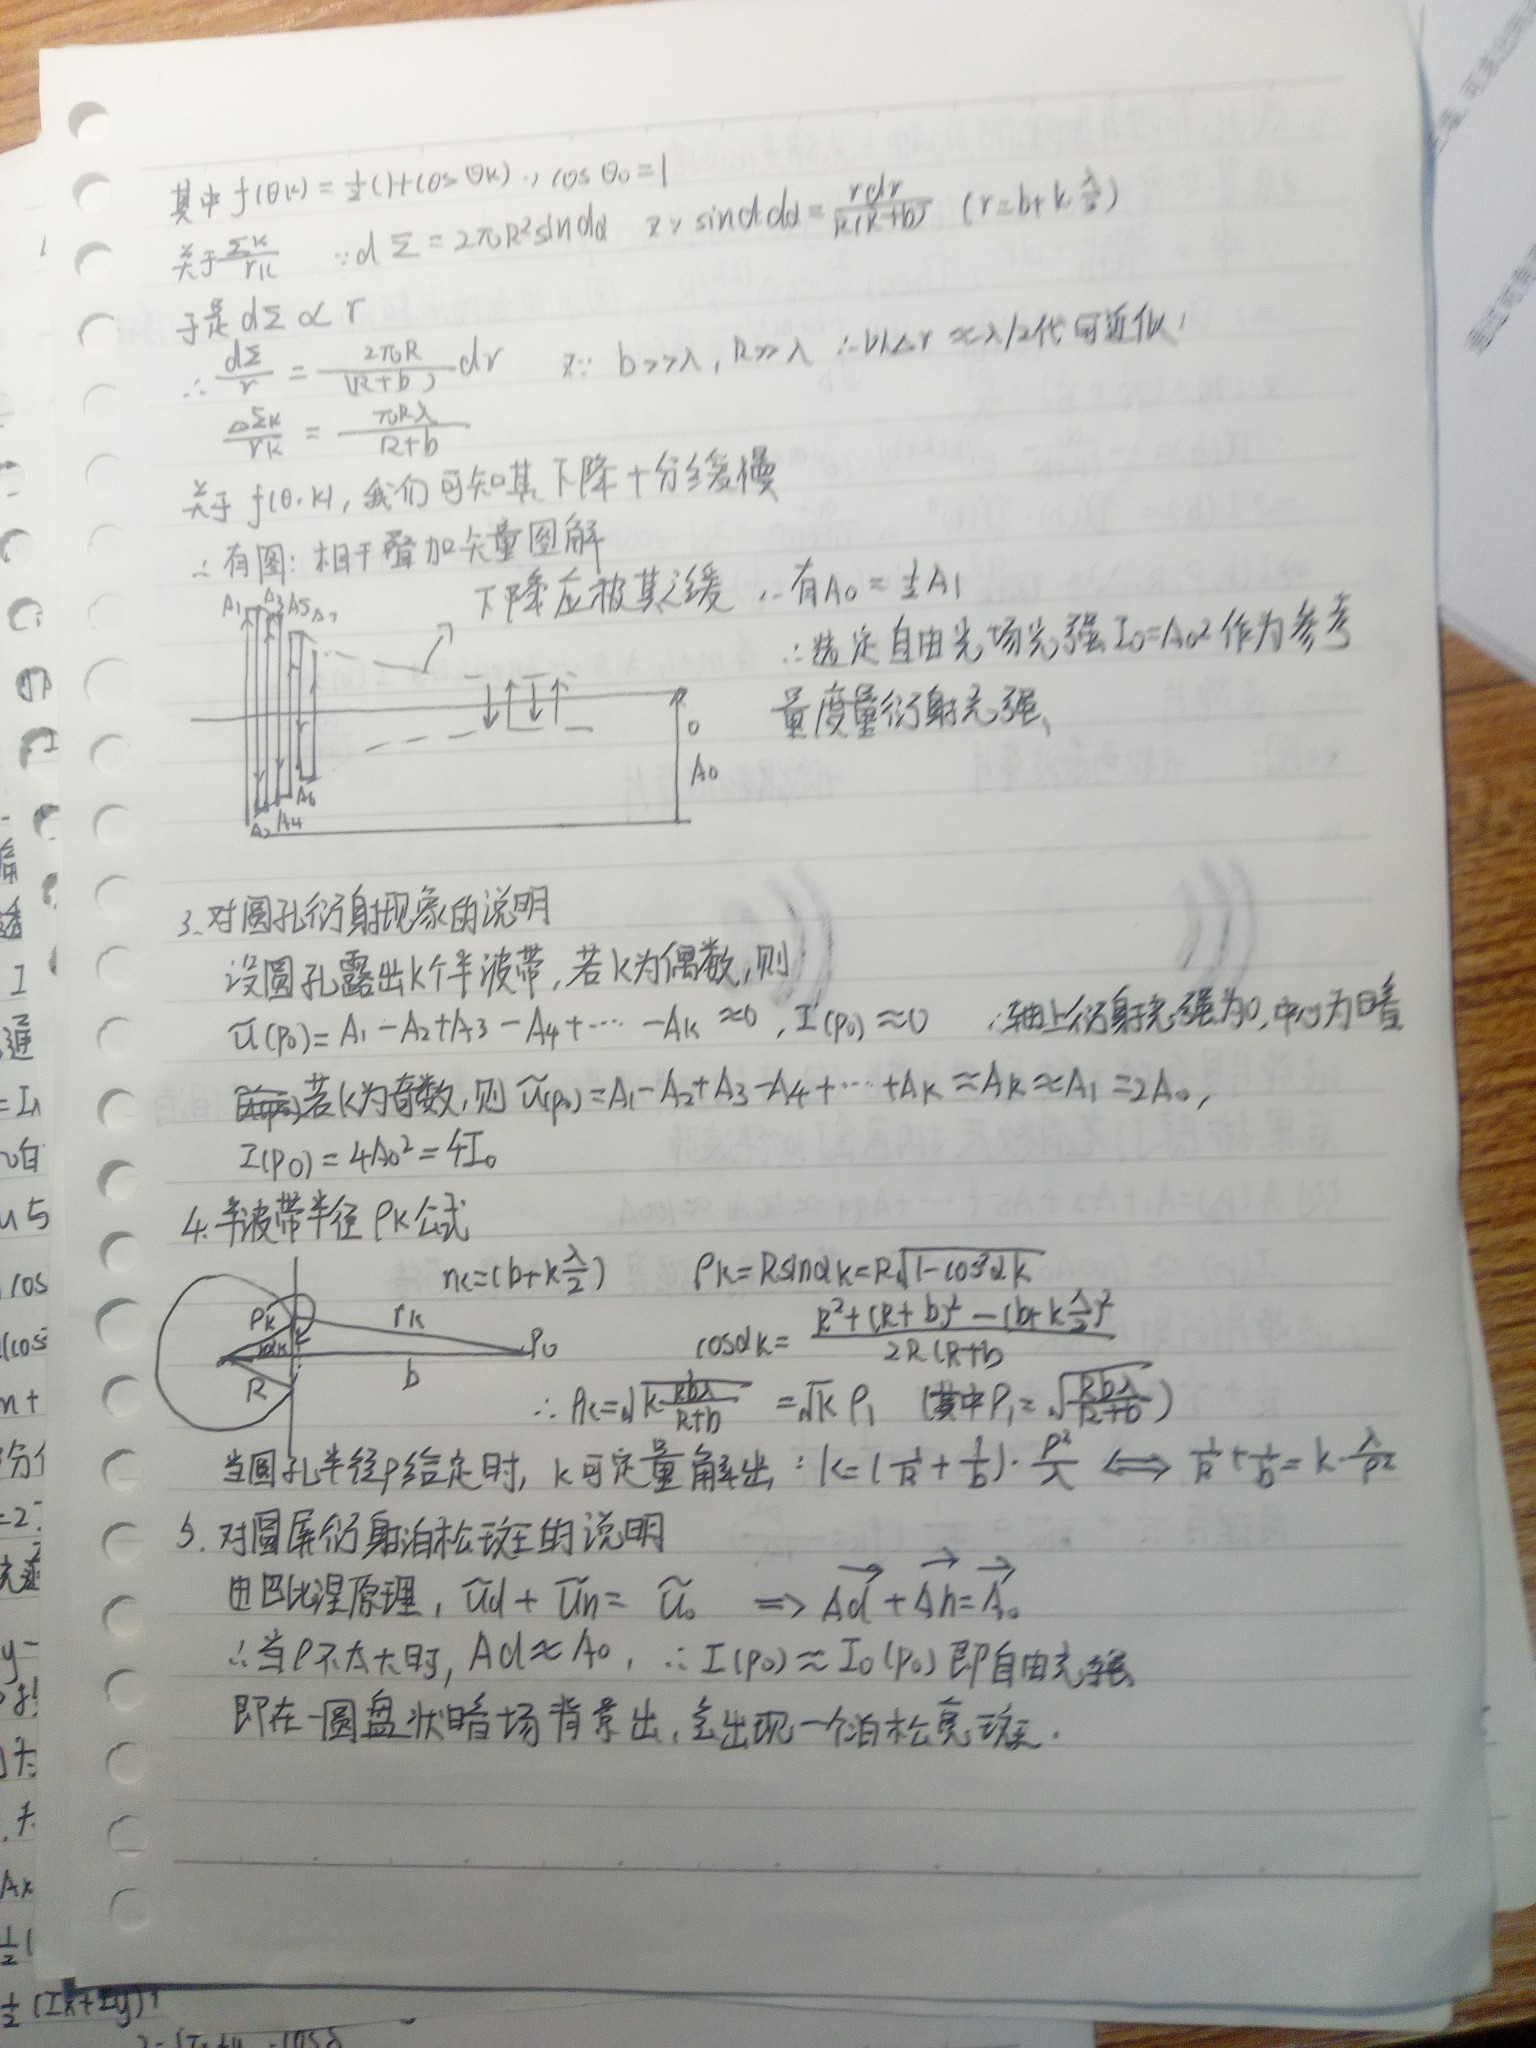 其中 f(θk) = ½(1+cosθk) ∵ cosθ0=1
关于 Σk/rk ∵ dΣ = 2πR²sinαdα 又∵ sinαdα = rdr/R(R+b) (r=b+k·λ/2)
于是 dΣ ∝ r
∴ dΣ/r = 2πR/(R+b) dr 又∵ b>>λ, R>>λ ∴以Δr≈λ/2代 可近似
ΔΣk/rk = πRλ/R+b
关于 f(θ·k), 我们可知其下降十分缓慢
∴有图: 相干叠加矢量图解
下降应极其之缓 ∴有A0=½A1
∴选定自由光场光强I0=A0²作为参考
量度量衍射光强、
A1 A3 A5 A7
0
A0
A2 A4 A6
3. 对圆孔衍射现象的说明
设圆孔露出k个半波带, 若k为偶数, 则
ũ(p0) = A1-A2+A3-A4+…-Ak ≈0, I(p0)≈0 ∴轴上衍射光强为0, 中心为暗
若k为奇数, 则 ũ(p0)=A1-A2+A3-A4+…+Ak≈Ak≈A1=2A0,
I(p0)=4A0²=4I0
4. 半波带半径ρk公式
rk=(b+k λ/2) ρk=Rsinαk=R√1-cos²αk
ρk rk
αk P0
R b
cosαk= R²+(R+b)²-(b+k λ/2)²/2R(R+b
∴ρk=√k·Rbλ/R+b =√k ρ1 (其中ρ1=√Rbλ/R+b)
当圆孔半径ρ给定时, k可定量解出: k=(1/R+1/b)·ρ²/λ ⟺ 1/R+1/b=k·λ/ρ²
5. 对圆屏衍射泊松斑的说明
由巴比涅原理, ũd+ũn=ũ0 ⇒ Ad+An=A0
∴当ρ不太大时, Ad≈A0, ∴I(p0)≈I0(p0) 即自由光强
即在一圆盘状暗场背景出, 会出现一个泊松亮斑.
½(Ix+Iy)